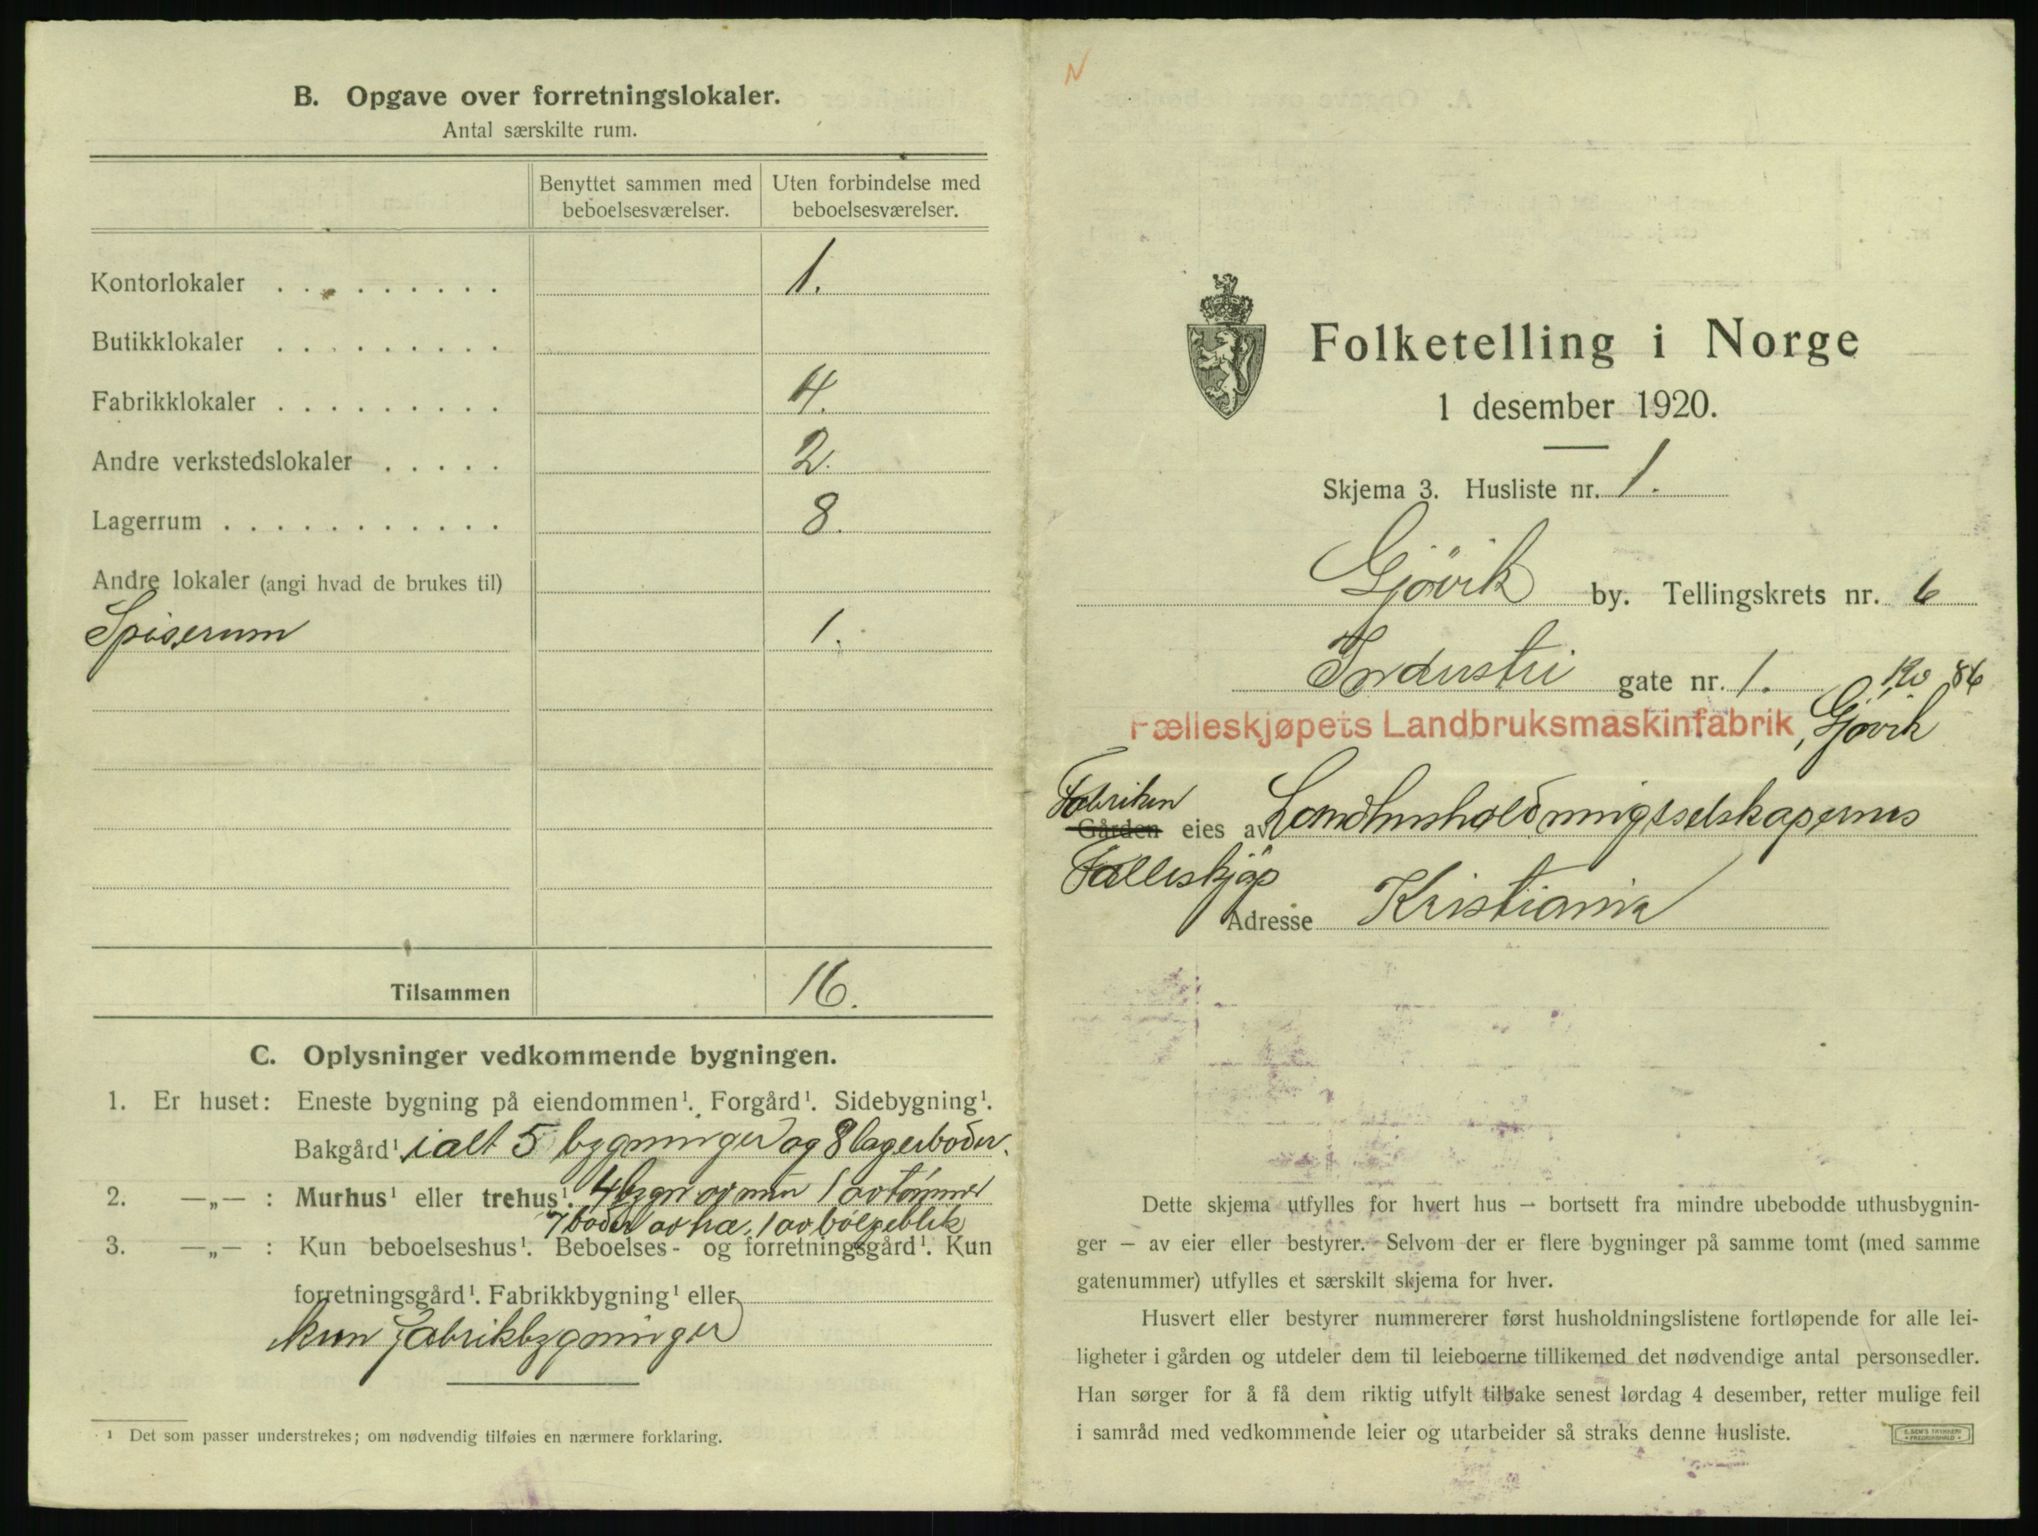 B. Opgave over forretningslokaler.
Antal særskilte rum.
Benyttet sammen med beboelsesværelser.
Uten forbindelse med beboelsesværelser.
Kontorlokaler . . . . . . . . . 1.
Butikklokaler . . . . . . . . .
Fabrikklokaler . . . . . . . . . 4.
Andre verkstedslokaler . . . . . 2.
Lagerrum . . . . . . . . . . . . 8.
Andre lokaler (angi hvad de brukes til)
Spiserum 1.
Tilsammen 16.
C. Oplysninger vedkommende bygningen.
1. Er huset: Eneste bygning på eiendommen¹. Forgård¹. Sidebygning¹.
Bakgård¹. ialt 5 bygninger og 8 lagerboder.
2. —„— : Murhus¹ eller trehus¹. 4 bygn av mur 1 av tømmer
7 boder av træ. 1 av bølgeblik
3. —„— : Kun beboelseshus¹. Beboelses- og forretningsgård¹. Kun
forretningsgård¹. Fabrikkbygning¹ eller
kun fabrikbygninger
¹ Det som passer understrekes; om nødvendig tilføies en nærmere forklaring.
N
Folketelling i Norge
1 desember 1920.
Skjema 3. Husliste nr. 1.
Gjövik by. Tellingskrets nr. 6
Industri gate nr. 1. 86
Fælleskjøpets Landbruksmaskinfabrik, Gjøvik
Fabriken
Gården eies av Landhusholdningsselskapernes
Fælleskjöp
Adresse Kristiania
Dette skjema utfylles for hvert hus — bortsett fra mindre ubebodde uthusbygnin-
ger — av eier eller bestyrer. Selvom der er flere bygninger på samme tomt (med samme
gatenummer) utfylles et særskilt skjema for hver.
Husvert eller bestyrer nummererer først husholdningslistene fortløpende for alle lei-
ligheter i gården og utdeler dem til leieboerne tillikemed det nødvendige antal personsedler.
Han sørger for å få dem riktig utfylt tilbake senest lørdag 4 desember, retter mulige feil
i samråd med vedkommende leier og utarbeider så straks denne husliste.